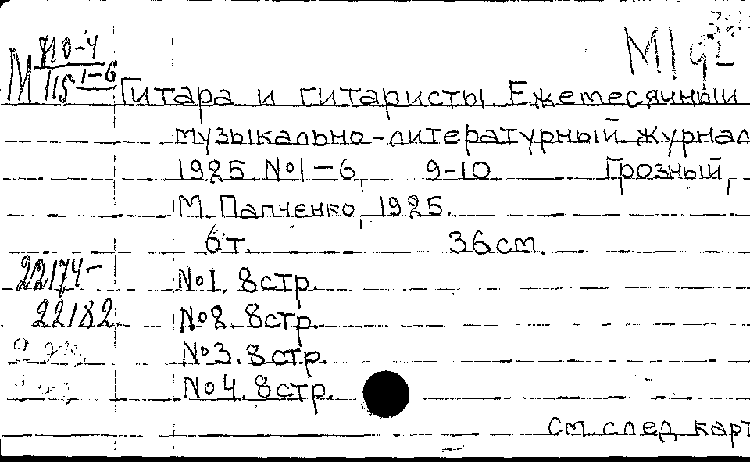 М 710-4 / 115 1-6
М1 92
Гитара и гитаристы Ежемесячный
музыкально-литературный журнал
1925 №1-6, 9-10 Грозный,
М. Папченко, 1925.
6т. 36см.
22174-
22182
№1. 8стр.
№2. 8стр.
№3. 8стр.
№4. 8стр.
См след карт